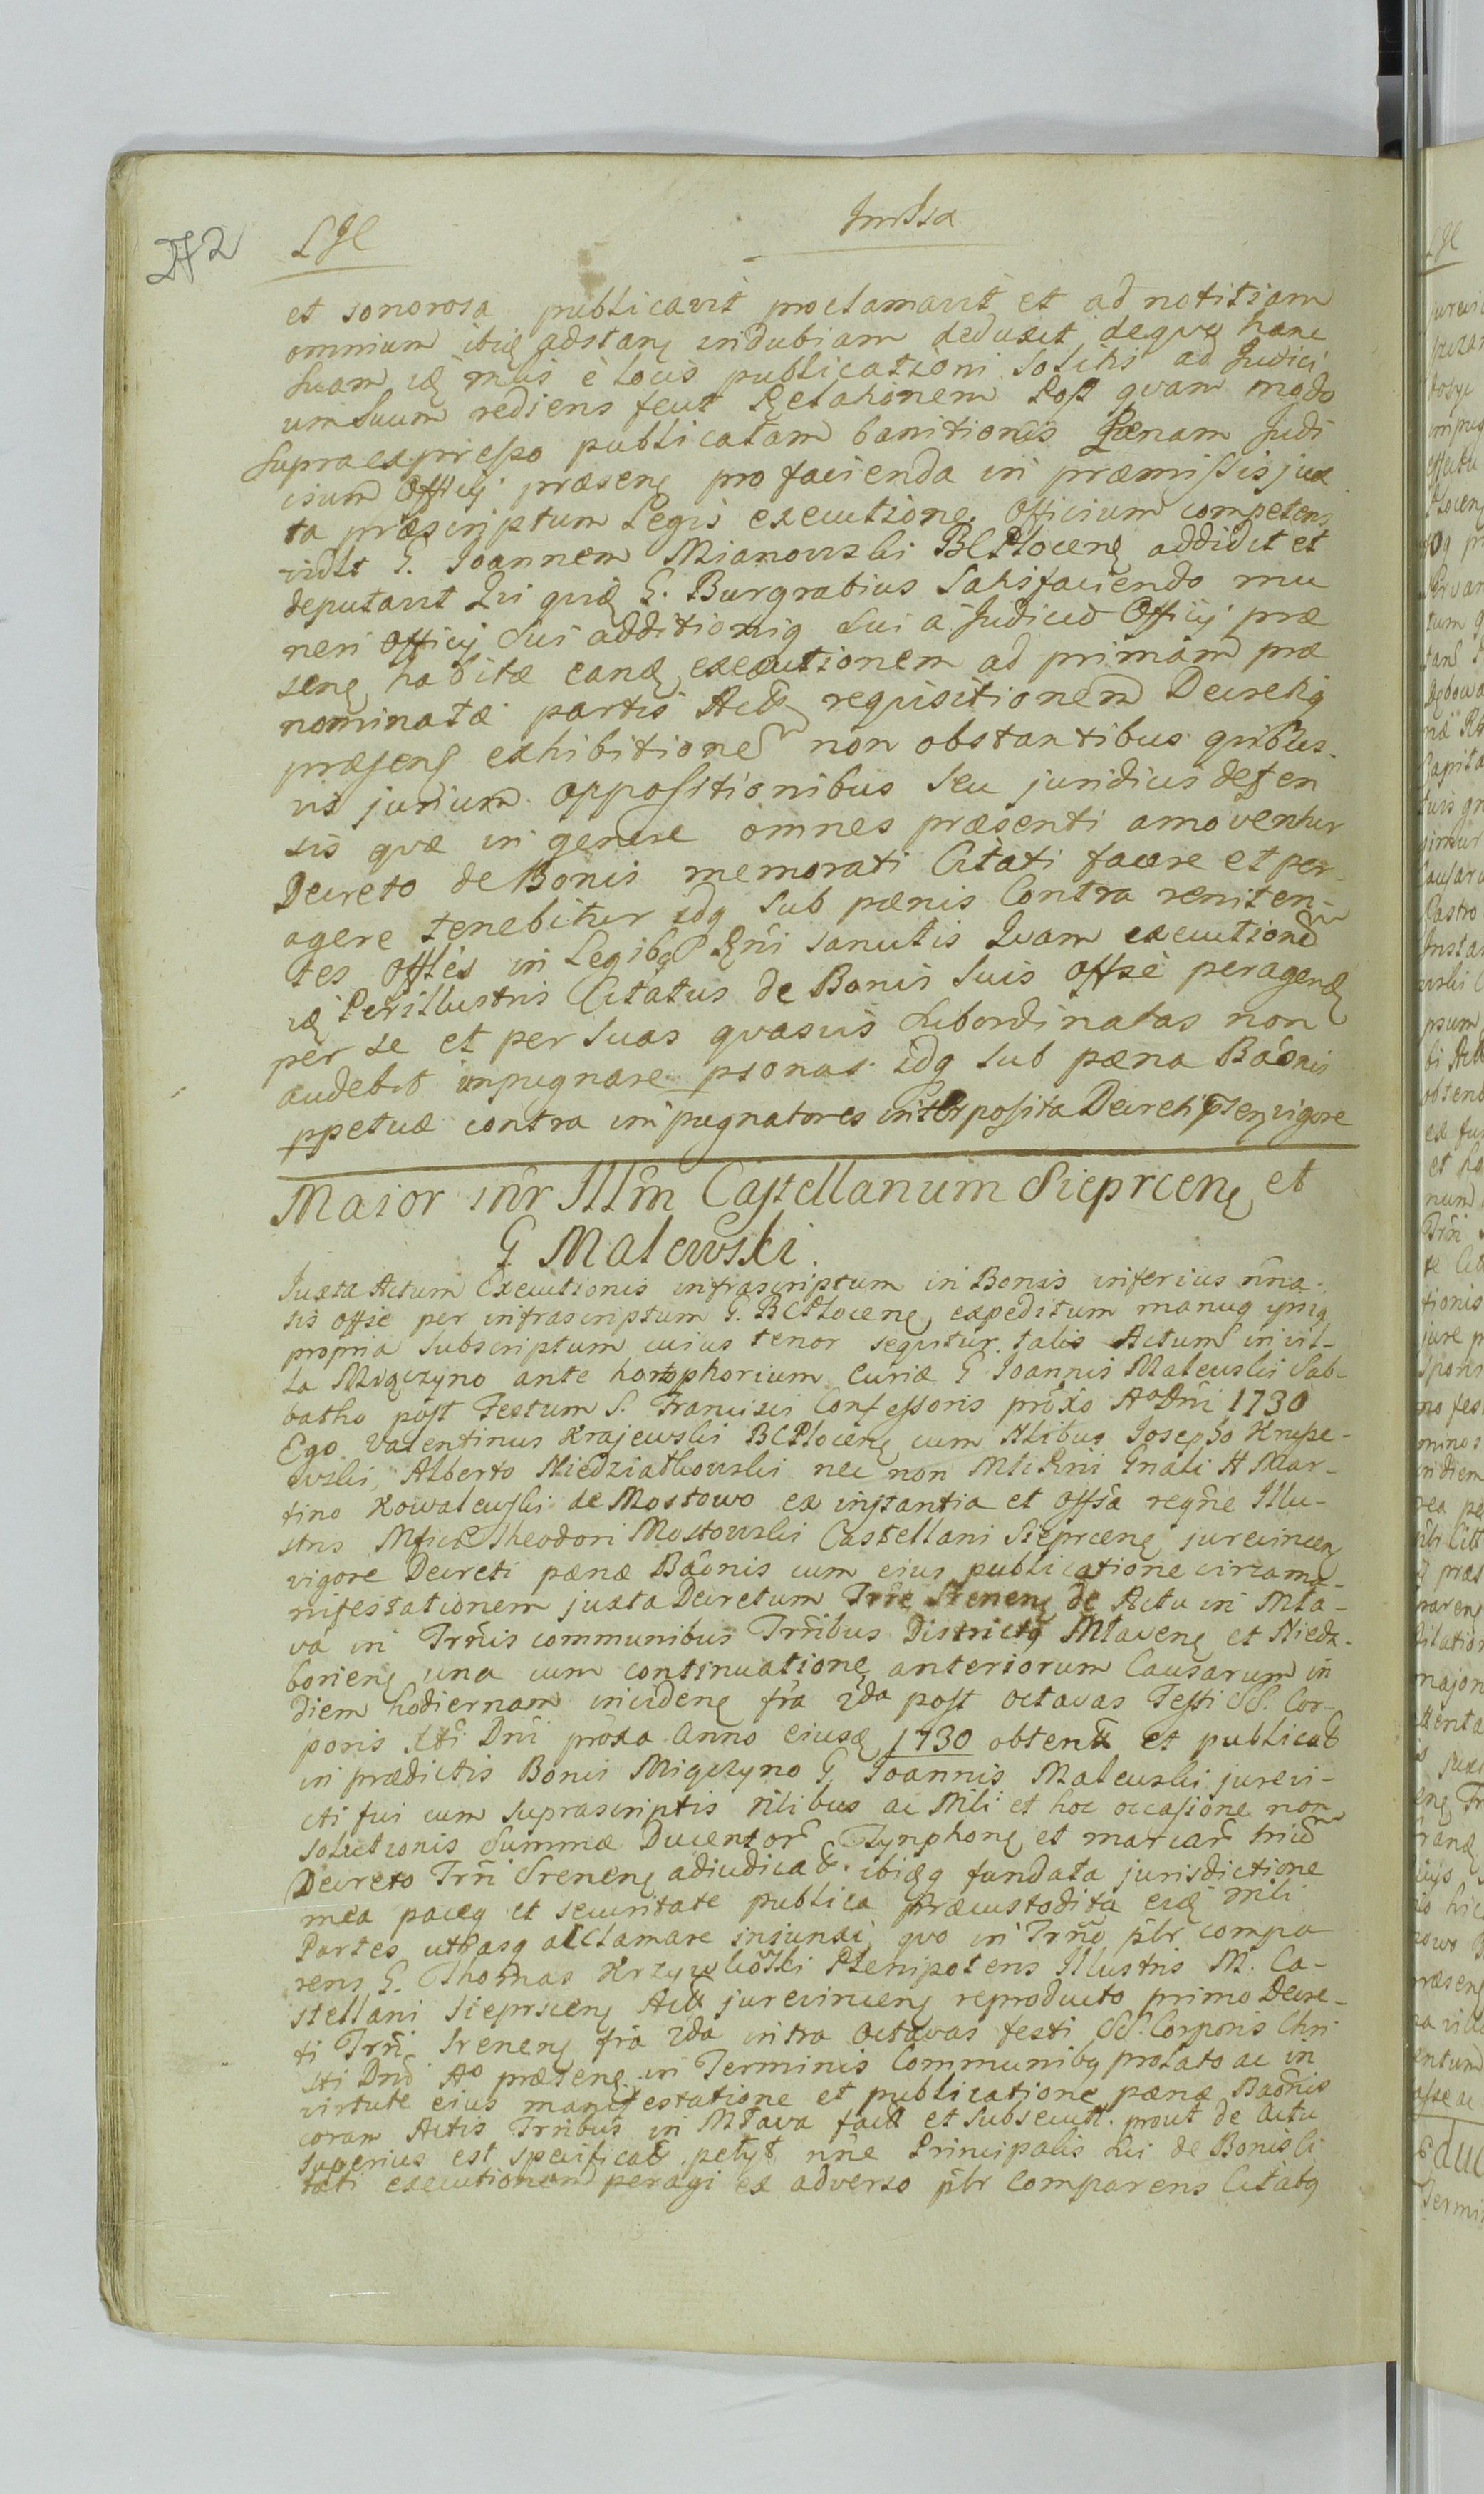 272
et sonorosa publicavit proclamavit et ad notitiam
omnium ibiq adstanę indubiam deduxit deque hanc
suam idę mlis è locis publicationi solitis ad Judici
um suum rediens fecit Relationem Post quam modo
supraexpresso publicatam banitionis Pœnam Judi
cium Officij præsenę pro facienda in præmissis jux
ta præscriptum Legis executione Officium competens
vidlt G. Joannem Mianowski BCPlocenę addidit et
deputavit Qui quidę G. Burgrabius satisfaciendo mu
neri Officij sui additioniq sui a Judicio Officij præ
senę habitæ eandę executionem ad primam præ
nominatæ partis Actę requisitionem Decretiq
præsenę exhibitionem non obstantibus quibus-
vis jurium oppositionibus seu juridicis defen
sis quæ in genere omnes præsenti amoventur
Decreto de Bonis memorati Citati facere et per-
agere tenebitur idq sub pænis Contra reniten-
tes Offles in Legibq Rni sancitis Quam executionem
idę Perillustris Citatus de Bonis suis offse peragendę
per se et per suas quasvis subordinatas non
audebit impugnare psonas idq sub pæna Baonis
ppetuæ contra impugnatores interposita Decreti pnsenę vigore
Maior inr Illm Castellanum Sieprcenę et
G Malewski.
Juxta Actum Executionis infrascriptum in Bonis inferius nna-
tis offse per infrascriptum G. BCPlocenę expeditum manuq ipsiq
propria subscriptum cuius tenor sequitur talis Actum in vil-
la Miączyno ante horthophorium Curiæ G Joannis Malewski Sab-
batho post Festum S. Francisci Confessoris proxo Ao Dni 1730
Ego Valentinus Krajewski BCPlocenę cum Nlibus Josepho Krupe-
wski, Alberto Niedziałkowski nec non Mli Rni Gnali H Mar-
tino Kowalewski de Mostowo ex instantia et offsa reqne Illu-
stris Mfici Theodori Mostowski Castellani Sieprcenę jurevincenę
vigore Decreti pænæ Baonis cum eius publicatione circa ma-
nifestationem juxta Decretum Trre Srenenę de Actu in Mła-
va in Trnis communibus Trribus Districtq Mlavenę et Niedz-
borienę una cum continuatione anteriorum Causarum in
diem hodiernam incidenę fria 2da post octavas Festi SS. Cor-
poris Xti Dni proxa Anno eiusdę 1730 obtentæ et publicatę
in prædictis Bonis Miączyno G. Joannis Malewski jurevi-
cti fui cum suprascriptis Nlibus ac Mli et hoc occasione non
solutionis Summæ Ducentor Tynphonę et marcar trium
Decreto Trri Srenenę adiudicatę ibidęq fundata jurisdictione
mea paceq et securitate publica præcustodita eidę mli
Partes utrasq acclamare iniunxi quo in Trno plr compa
rens G. Thomas Krzywkowski Plenipotens Illustris M. Ca-
stellani Sieprscenę Actę jurevincenę reproducto primo Decre-
ti Trri Srenenę fria 2da intra Octavas festi SS. Corporis Chri
sti Dni Ao præsenę in Terminis Communibq prolato ac in
virtute eius manifestatione et publicatione pænæ Baonis
coram Actis Trribus in Mława factę et subsecutę. prout de actu
superius est specificatę. petijt nne Principalis sui de Bonis Ci
tati executionem peragi ex adverso plr Comparens Citatq